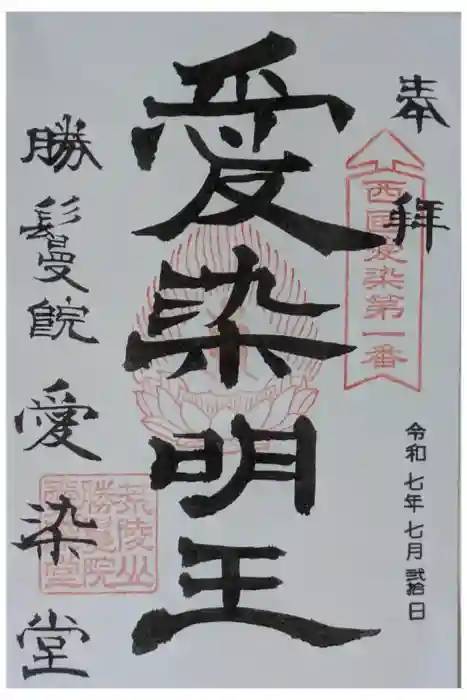 奉拝
西国愛染第一番
令和七年七月弐拾日
愛染明王
勝鬘院愛染堂
荒陵山
勝鬘院
愛染堂